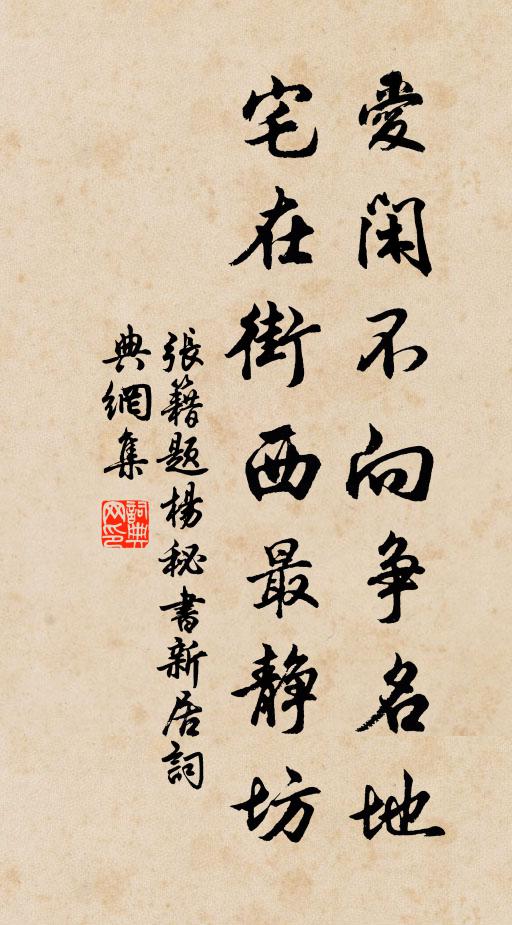 愛閑不向争名地
宅在街西最静坊
張籍題楊秘書新居詞
典網集
詞典网印